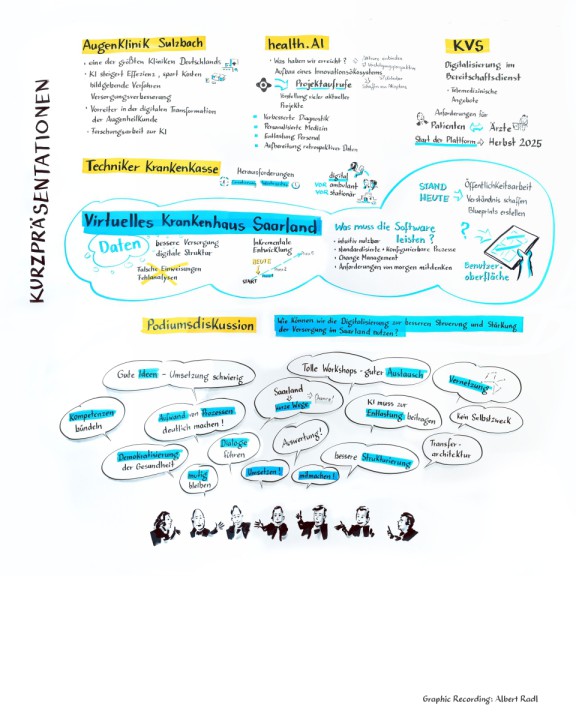 KURZPRÄSENTATIONEN
AugenKlinik Sulzbach
• eine der größten Kliniken Deutschlands
• KI steigert Effizienz, spart Kosten
bildgebende Verfahren
Versorgungsverbesserung
• Vorreiter in der digitalen Transformation
der Augenheilkunde
• Forschungsarbeit zur KI
health.AI
• Was haben wir erreicht?
Aufbau eines Innovationsökosystems
Projektaufrufe
Vorstellung vieler aktueller
Projekte
Verbesserte Diagnostik
Personalisierte Medizin
Entlastung Personal
Aufbereitung retrospektiver Daten
KVS
Digitalisierung im
Bereitschaftsdienst
• Telemedizinische
Angebote
Anforderungen für
Patienten Ärzte
Start der Plattform Herbst 2025
Techniker KrankenKasse
Herausforderungen
digital
VOR ambulant
VOR stationär
STAND
HEUTE
Öffentlichkeitsarbeit
Verständnis schaffen
Blueprints erstellen
Virtuelles Krankenhaus Saarland
Daten
bessere Versorgung
digitale Struktur
Falsche Einweisungen
Fehlanalysen
Inkrementelle
Entwicklung
HEUTE
START
Was muss die Software
leisten?
• intuitiv nutzbar
• standardisierte + konfigurierbare Prozesse
• Change Management
• Anforderungen von morgen mitdenken
?
Benutzer-
oberfläche
Podiumsdiskussion
Wie können wir die Digitalisierung zur besseren Steuerung und Stärkung
der Versorgung im Saarland nutzen?
Gute Ideen - Umsetzung schwierig
Tolle Workshops - guter Austausch
Vernetzung
Kompetenzen
bündeln
Aufwand von Prozessen
deutlich machen!
Saarland
kurze Wege
Chance!
KI muss zur
Entlastung beitragen
Kein Selbstzweck
Demokratisierung
der Gesundheit
Dialoge
führen
Auswertung!
bessere Strukturierung
Transfer-
architektur
mutig
bleiben
Umsetzen!
mitmachen!
Graphic Recording: Albert Radl